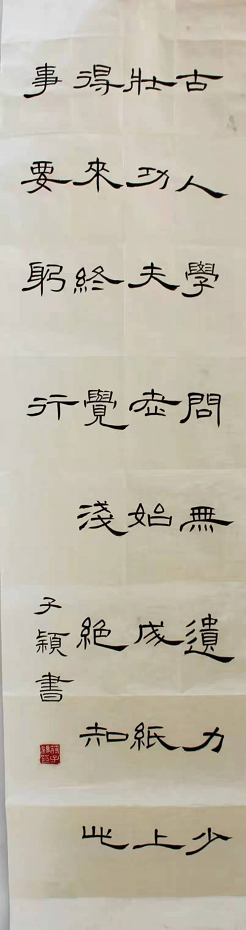 古人學問無遺力少
壯功夫老始成紙上
得來終覺淺絕知此
事要躬行
子穎書